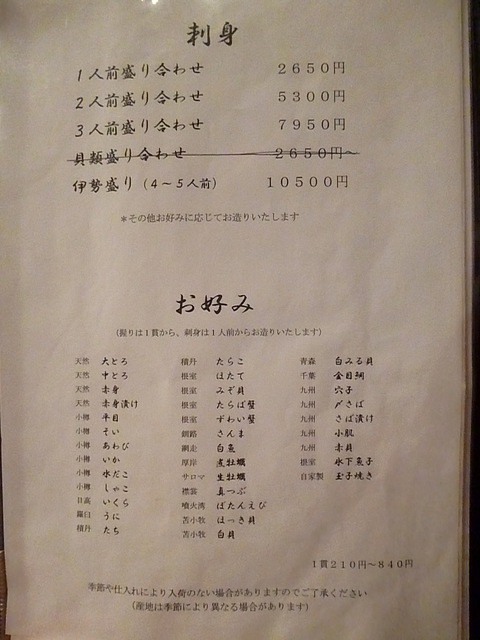 刺身
1人前盛り合わせ 2650円
2人前盛り合わせ 5300円
3人前盛り合わせ 7950円
貝類盛り合わせ 2650円～
伊勢盛り（4～5人前） 10500円
＊その他お好みに応じてお造りいたします
お好み
（握りは1貫から、刺身は1人前からお造りいたします）
天然 大とろ
天然 中とろ
天然 赤身
天然 赤身漬け
小樽 平目
小樽 そい
小樽 あわび
小樽 いか
小樽 水だこ
小樽 しゃこ
日高 いくら
羅臼 うに
積丹 たち
積丹 たらこ
根室 ほたて
根室 みぞ貝
根室 たらば蟹
根室 ずわい蟹
釧路 さんま
網走 白魚
厚岸 煮牡蠣
サロマ 生牡蠣
襟裳 真つぶ
噴火湾 ぼたんえび
苫小牧 ほっき貝
苫小牧 白貝
青森 白みる貝
千葉 金目鯛
九州 穴子
九州 〆さば
九州 さば漬け
九州 小肌
九州 赤貝
根室 氷下魚子
自家製 玉子焼き
1貫210円～840円
季節や仕入れにより入荷のない場合がありますのでご了承ください
（産地は季節により異なる場合があります）